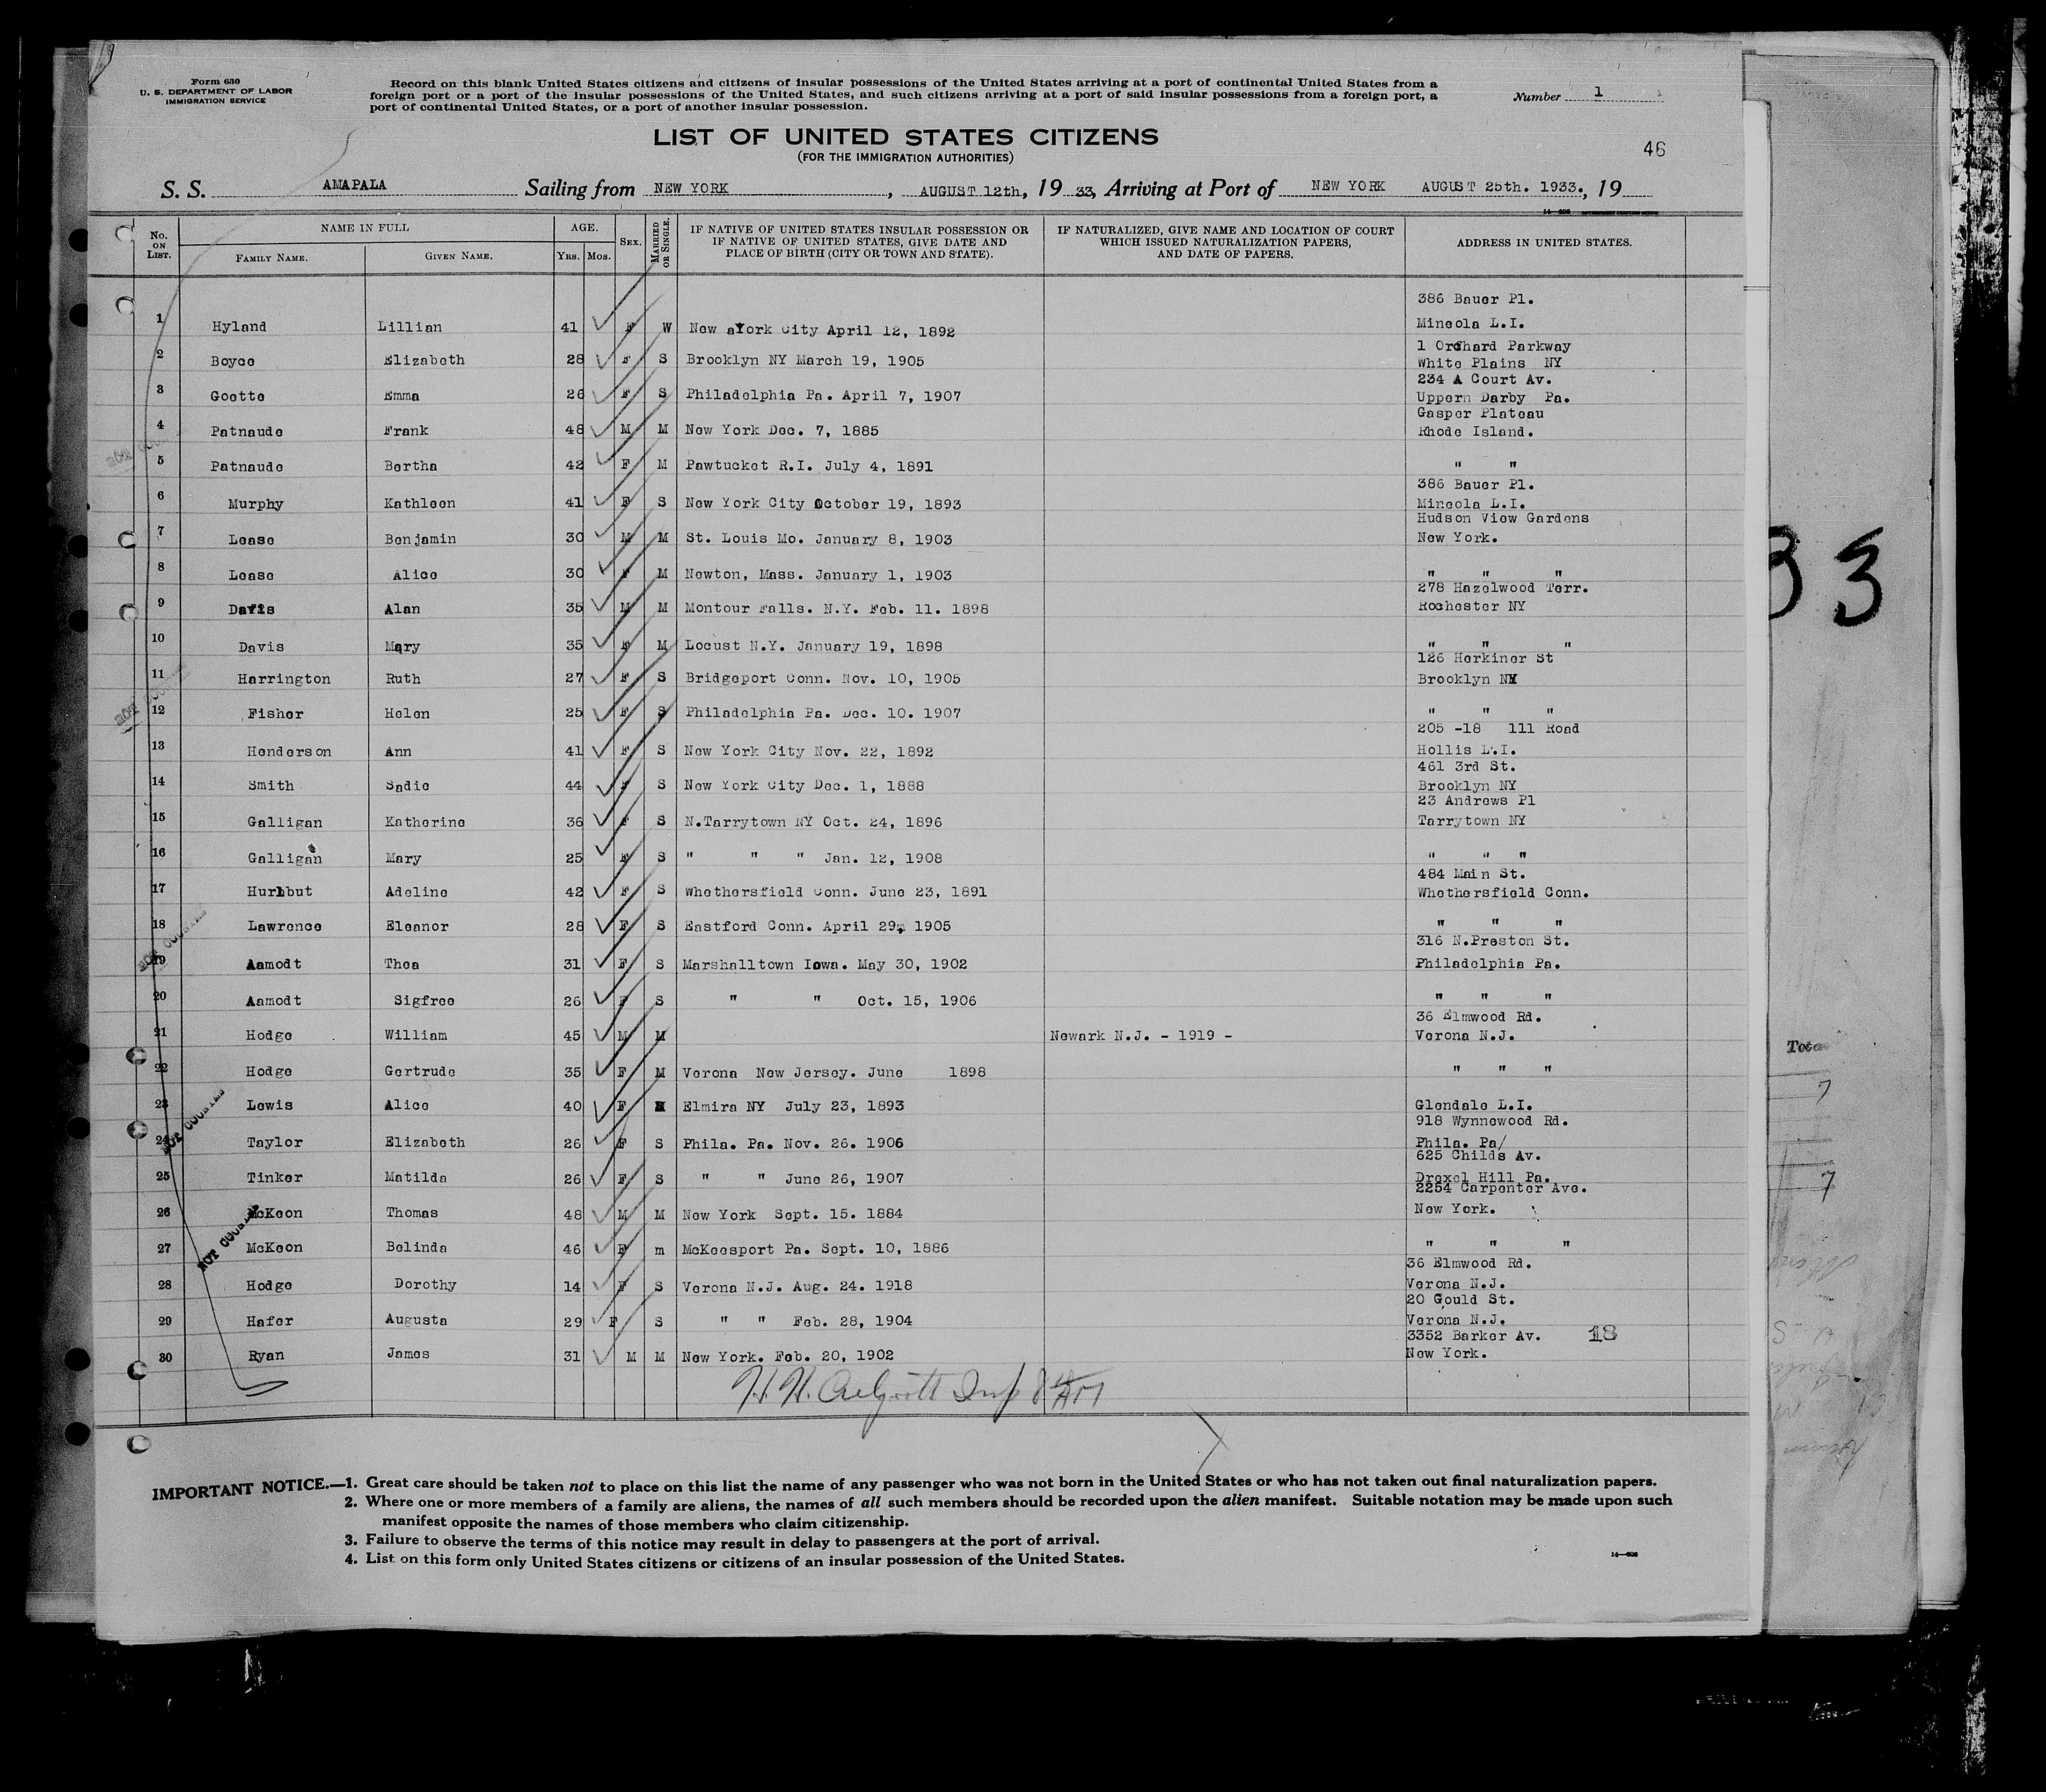 Form 630
U. S. DEPARTMENT OF LABOR
IMMIGRATION SERVICE
Record on this blank United States citizens and citizens of insular possessions of the United States arriving at a port of continental United States from a
foreign port or a port of the insular possessions of the United States, and such citizens arriving at a port of said insular possessions from a foreign port, a
port of continental United States, or a port of another insular possession.
Number 1
LIST OF UNITED STATES CITIZENS
(FOR THE IMMIGRATION AUTHORITIES)
46
S. S. AMAPALA Sailing from NEW YORK, AUGUST 12th, 19 33, Arriving at Port of NEW YORK AUGUST 25th. 1933., 19
No. ON LIST. NAME IN FULL AGE. SEX. MARRIED OR SINGLE. IF NATIVE OF UNITED STATES INSULAR POSSESSION OR IF NATIVE OF UNITED STATES, GIVE DATE AND PLACE OF BIRTH (CITY OR TOWN AND STATE). IF NATURALIZED, GIVE NAME AND LOCATION OF COURT WHICH ISSUED NATURALIZATION PAPERS, AND DATE OF PAPERS. ADDRESS IN UNITED STATES.
FAMILY NAME. GIVEN NAME. Yrs. Mos.
386 Bauer Pl.
1 Hyland Lillian 41 F W New aYork City April 12, 1892 Mineola L.I.
1 Orchard Parkway
2 Boyce Elizabeth 28 F S Brooklyn NY March 19, 1905 White Plains NY
234 A Court Av.
3 Goette Emma 26 F S Philadelphia Pa. April 7, 1907 Uppern Darby Pa.
Gasper Plateau
4 Patnaude Frank 48 M M New York Dec. 7, 1885 Rhode Island.
5 Patnaude Bertha 42 F M Pawtucket R.I. July 4, 1891 " "
386 Bauer Pl.
6 Murphy Kathleen 41 F S New York City October 19, 1893 Mineola L.I.
Hudson View Gardens
7 Lease Benjamin 30 M M St. Louis Mo. January 8, 1903 New York.
8 Lease Alice 30 F M Newton, Mass. January 1, 1903 " " "
278 Hazelwood Terr.
9 Davis Alan 35 M M Montour Falls. N.Y. Feb. 11. 1898 Rochester NY
10 Davis Mary 35 F M Locust N.Y. January 19, 1898 " " "
126 Herkiner St
11 Harrington Ruth 27 F S Bridgeport Conn. Nov. 10, 1905 Brooklyn NY
12 Fisher Helen 25 F S Philadelphia Pa. Dec. 10. 1907 " " "
205 -18 111 Road
13 Henderson Ann 41 F S New York City Nov. 22, 1892 Hollis L.I.
461 3rd St.
14 Smith Sadie 44 F S New York City Dec. 1, 1888 Brooklyn NY
23 Andrews Pl
15 Galligan Katherine 36 F S N.Tarrytown NY Oct. 24, 1896 Tarrytown NY
16 Galligan Mary 25 F S " " " Jan. 12, 1908 " " "
484 Main St.
17 Hurlbut Adeline 42 F S Whethersfield Conn. June 23, 1891 Whethersfield Conn.
18 Lawrence Eleanor 28 F S Eastford Conn. April 29, 1905 " " "
316 N.Preston St.
19 Aamodt Thea 31 F S Marshalltown Iowa. May 30, 1902 Philadelphia Pa.
20 Aamodt Sigfree 26 F S " " Oct. 15, 1906 " " "
36 Elmwood Rd.
21 Hodge William 45 M M Newark N.J. - 1919 - Verona N.J.
22 Hodge Gertrude 35 F M Verona New Jersey. June 1898 " " "
23 Lewis Alice 40 F Elmira NY July 23, 1893 Glendale L.I.
918 Wynnewood Rd.
24 Taylor Elizabeth 26 F S Phila. Pa. Nov. 26. 1906 Phila. Pa/
625 Childs Av.
25 Tinker Matilda 26 F S " " June 26, 1907 Drexel Hill Pa.
2254 Carpenter Ave.
26 McKeon Thomas 48 M M New York Sept. 15. 1884 New York.
27 McKeon Belinda 46 F m McKeesport Pa. Sept. 10, 1886 " " "
36 Elmwood Rd.
28 Hodge Dorothy 14 F S Verona N.J. Aug. 24. 1918 Verona N.J.
20 Gould St.
29 Hafer Augusta 29 F S " " Feb. 28, 1904 Verona N.J.
3352 Barker Av. 18
30 Ryan James 31 M M New York. Feb. 20, 1902 New York.
NOT COUNTED
NOT COUNTED
33
Total
7
7
IMPORTANT NOTICE.—1. Great care should be taken not to place on this list the name of any passenger who was not born in the United States or who has not taken out final naturalization papers.
2. Where one or more members of a family are aliens, the names of all such members should be recorded upon the alien manifest. Suitable notation may be made upon such
manifest opposite the names of those members who claim citizenship.
3. Failure to observe the terms of this notice may result in delay to passengers at the port of arrival.
4. List on this form only United States citizens or citizens of an insular possession of the United States.